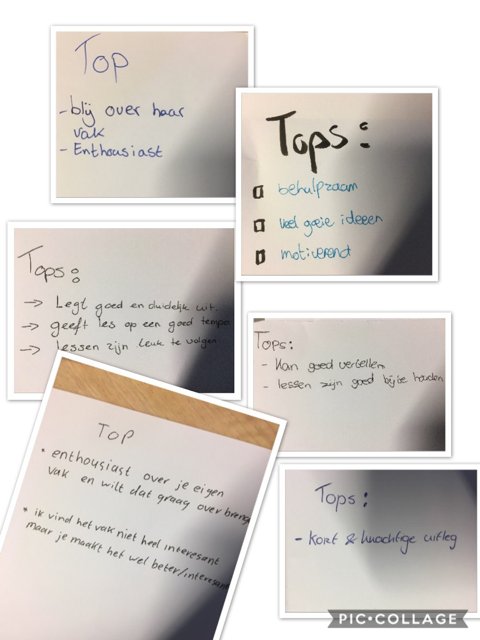 Top
- blij over haar
vak
- Enthousiast
Tops:
behulpzaam
veel goeie ideeen
motiverend
Tops:
→ Legt goed en duidelijk uit.
→ geeft les op een goed tempo
→ lessen zijn leuk te volgen
Tops:
- Kan goed vertellen
- lessen zijn goed bij te houden
TOP
* enthousiast over je eigen
vak en wilt dat graag over breng
* ik vind het vak niet heel interesant
maar je maakt het wel beter/interesan
Tops:
- Kort & krachtige uitleg
PIC•COLLAGE